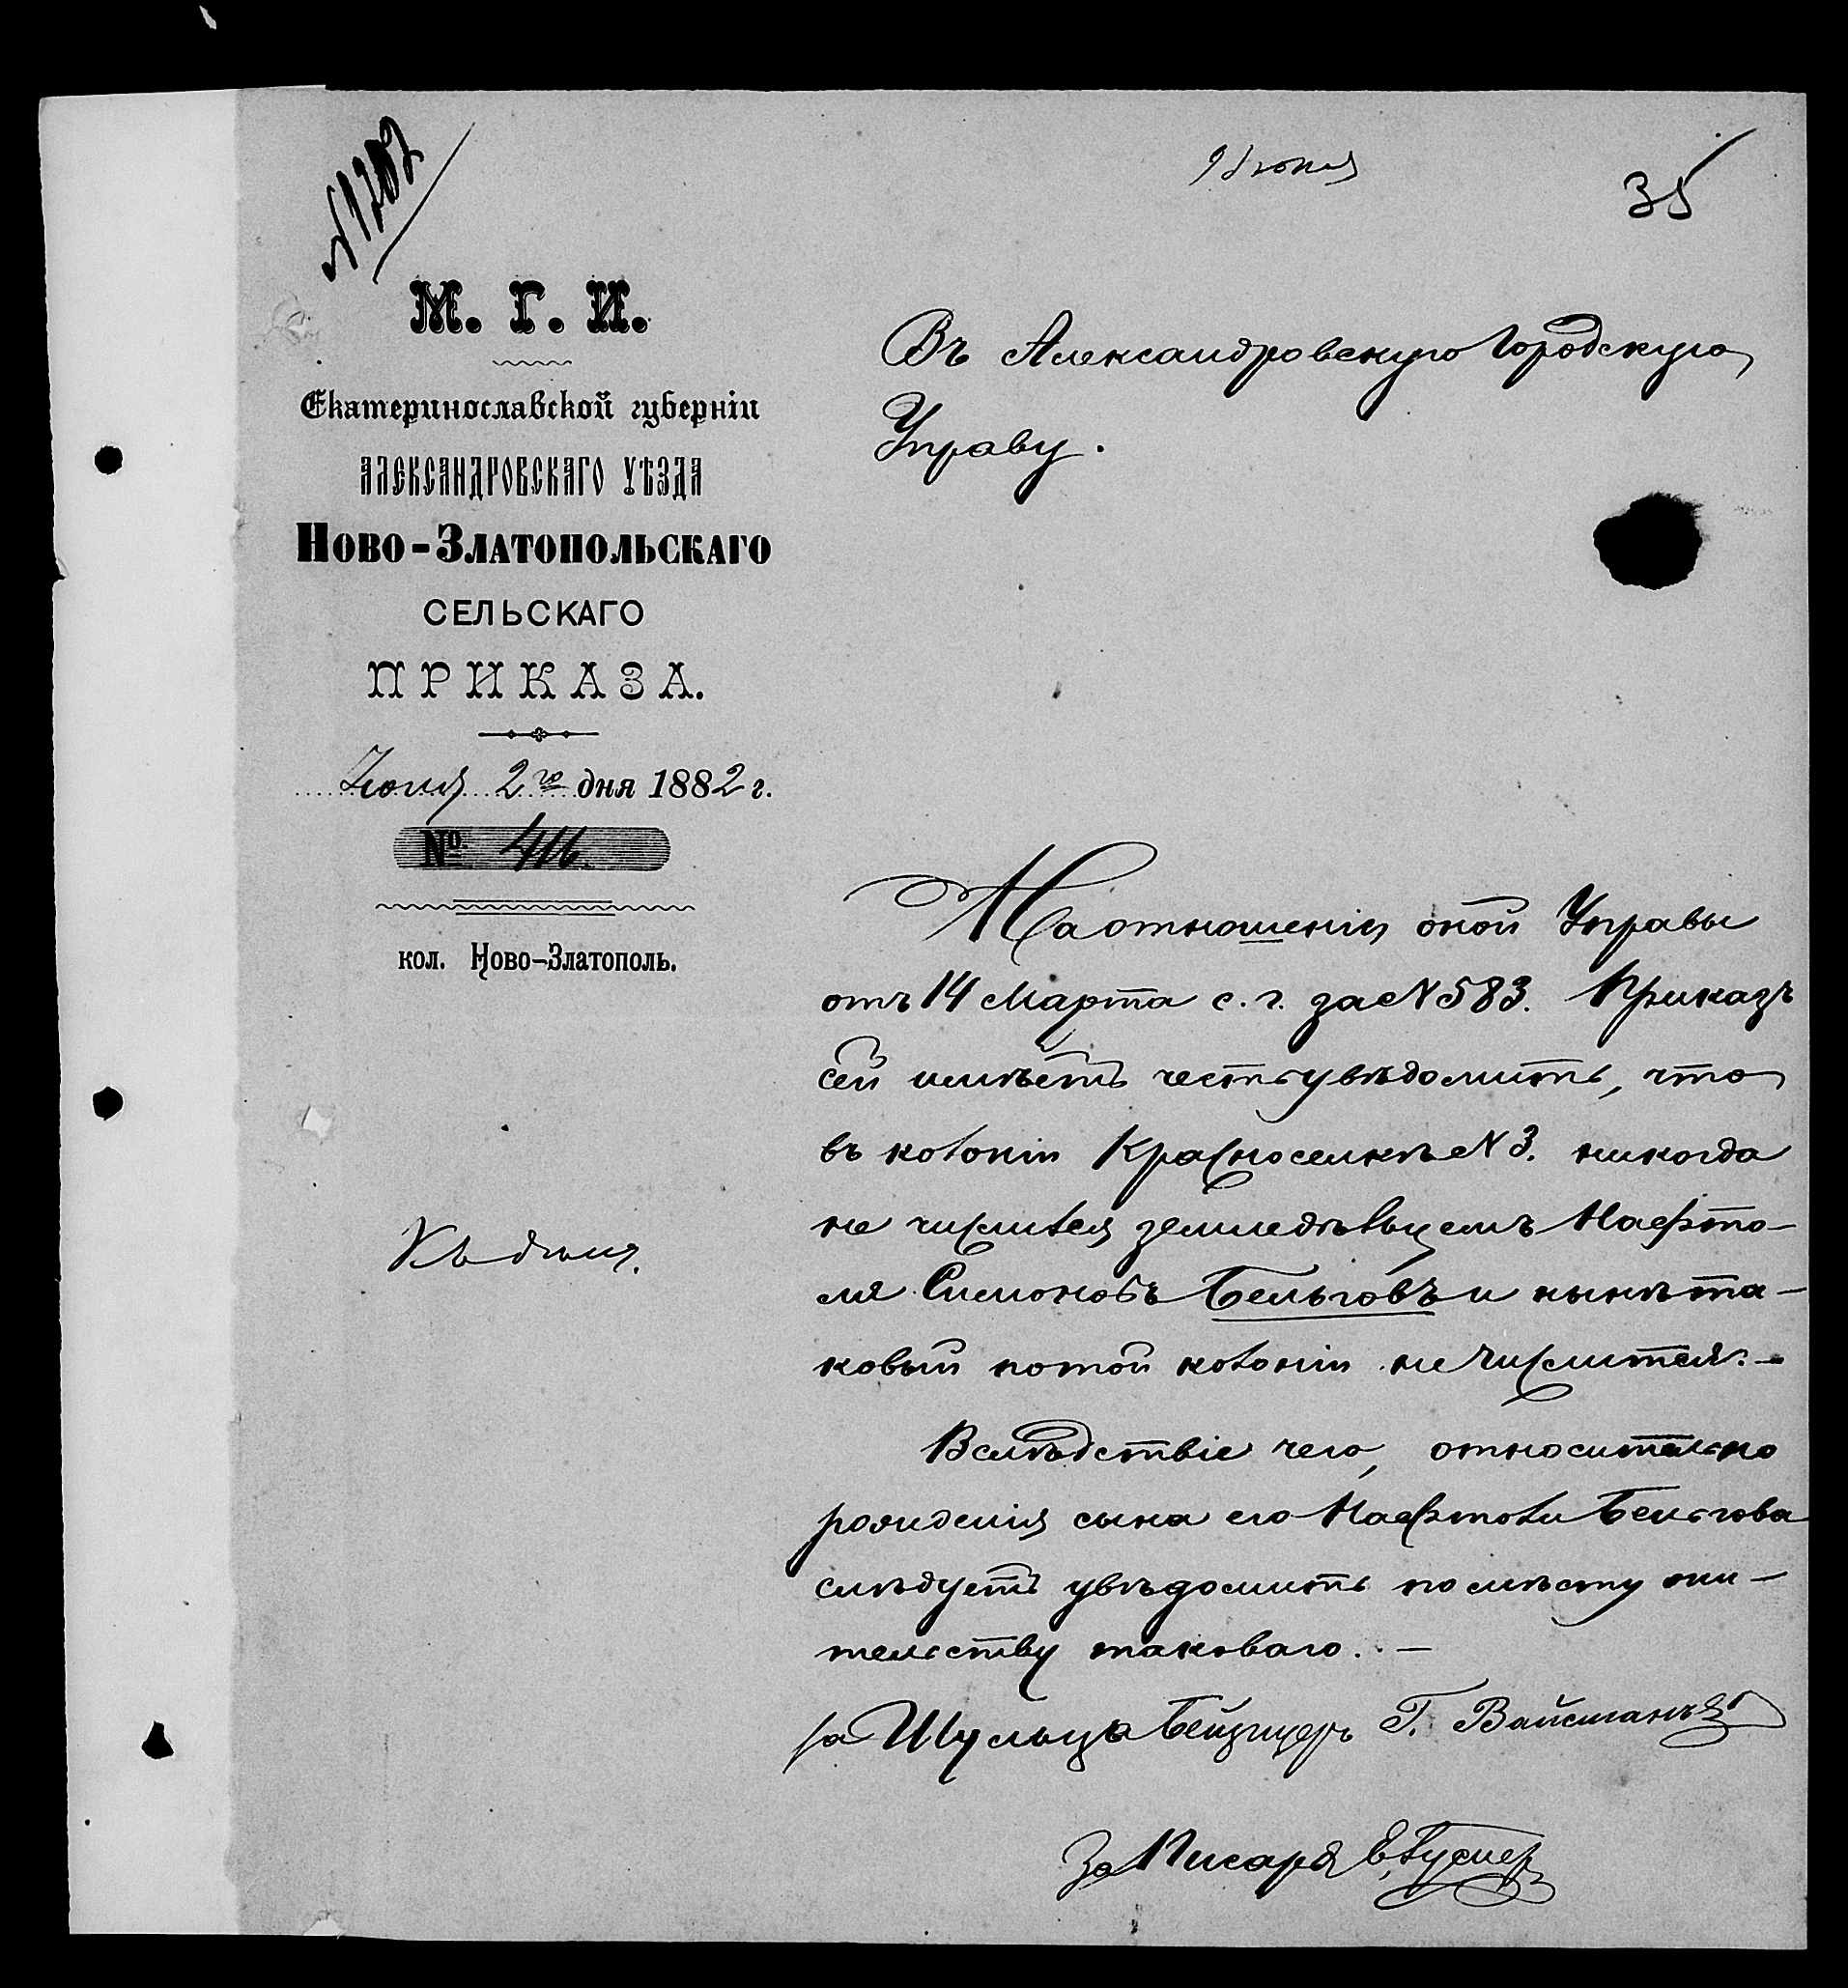 №1202
9 Іюня
35
М. Г. И.
Екатеринославской губерніи
АЛЕКСАНДРОВСКАГО УѢЗДА
НОВО-ЗЛАТОПОЛЬСКАГО
СЕЛЬСКАГО
ПРИКАЗА.
Іюня 2го дня 1882 г.
№ 416.
кол. Ново-Златополь.
Къ дѣлу.
Въ Александровскую Городскую
Управу.
На отношеніи оной Управы
отъ 14 Марта с. г. за №583. Приказъ
сей имѣетъ честь увѣдомить, что
въ колоніи Красноселкѣ №3. никогда
не числился земледѣльцемъ Нафто-
ля Симоновъ Бельговъ и нынѣ та-
ковый по той колоніи не числится.-
Вслѣдствіе чего, относительно
рожденія сына его Нафтоли Бельгова
слѣдуетъ увѣдомить по мѣсту жи-
тельству таковаго. -
за Шульца Бейзицеръ Г. Вайсманъ
За Писаря